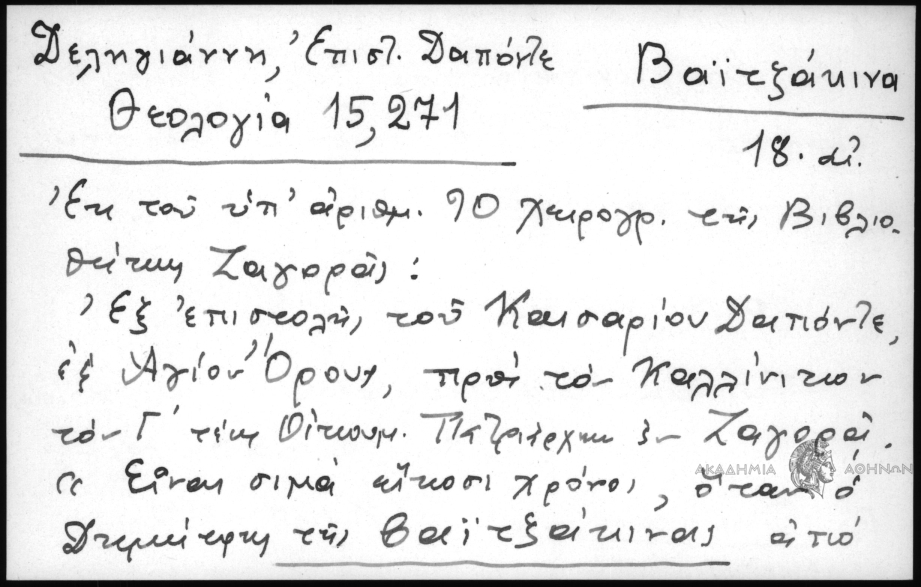 Δεληγιάννη, Ἐπιστ. Δαπόντε
Θεολογία 15,271
Βαϊτζάκινα
18. αἰ.
Ἐκ τοῦ ὑπ' ἀριθμ. 90 χειρογρ. τῆς Βιβλιο-
θήκης Ζαγορᾶς:
Ἐξ ἐπιστολῆς τοῦ Καισαρίου Δαπόντε,
ἐξ Ἁγίου Ὄρους, πρὸς τὸν Καλλίνικον
τὸν Γ' τέως Οἰκουμ. Πατριάρχην ἐν Ζαγορᾷ.
« Εἶναι σιμά εἴκοσι χρόνοι, ὅταν ὁ
Δημήτρης τῆς βαϊτζάκινας ἀπό
ΑΚΑΔΗΜΙΑ ΑΘΗΝΩΝ